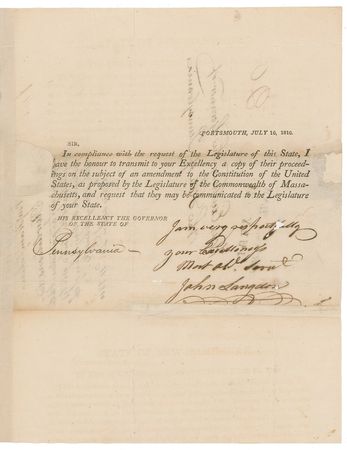 PORTSMOUTH, JULY 10, 1810.
SIR,
In compliance with the request of the Legislature of this State, I
have the honour to transmit to your Excellency a copy of their proceed-
ings on the subject of an amendment to the Constitution of the United
States, as proposed by the Legislature of the Commonwealth of Massa-
chusetts, and request that they may be communicated to the Legislature
of your State.
HIS EXCELLENCY THE GOVERNOR
OF THE STATE OF
Pennsylvania
I am very respectfully
your Excellency's
Most Obt. Servt.
John Langdon